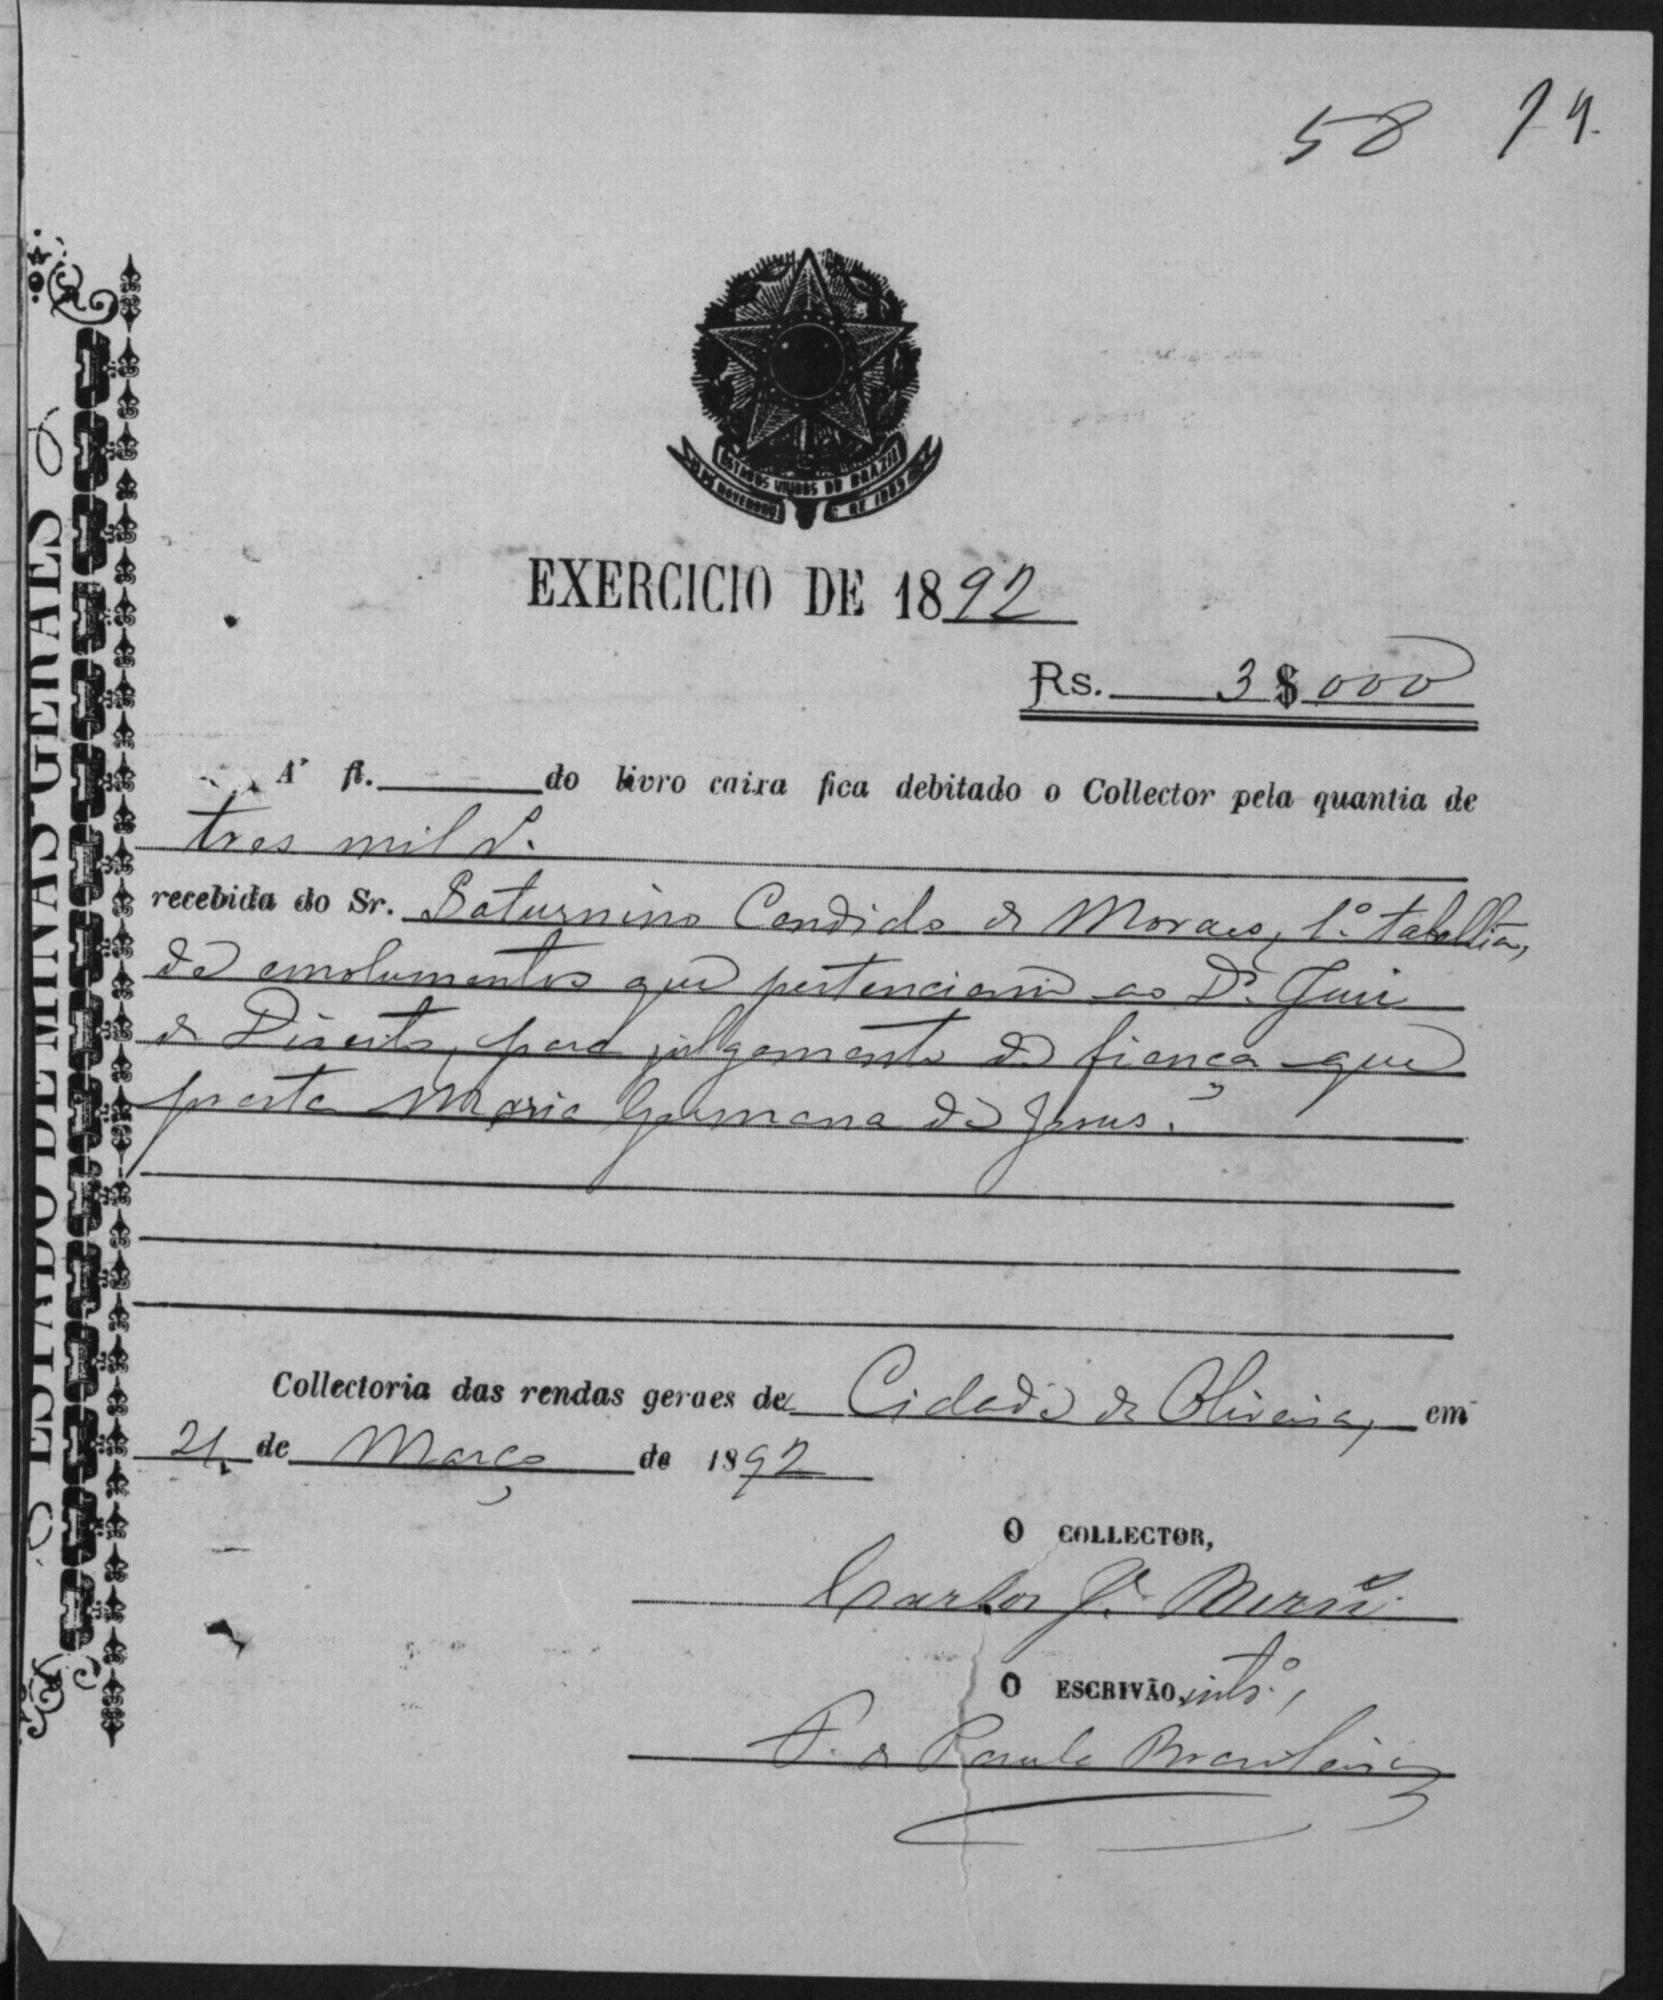 58 74.
ESTADO DE MINAS GERAES
ESTADOS UNIDOS DO BRAZIL
15 DE NOVEMBRO DE 1889
EXERCICIO DE 1892
Rs. 3$000
A' fl. do livro caixa fica debitado o Collector pela quantia de
tres mil rs.
recebida do Sr. Saturnino Candido de Moraes, 1º tabellião,
de emolumentos que pertencião ao Dr. Juiz
de Direito, para julgamento da fiança que
presta Maria Germana de Jesus.
Collectoria das rendas geraes de Cidade de Oliveira, em
21 de Março de 1892
O COLLECTOR,
Carlos J.
O ESCRIVÃO, intº,
F. de Paula Brasileiro